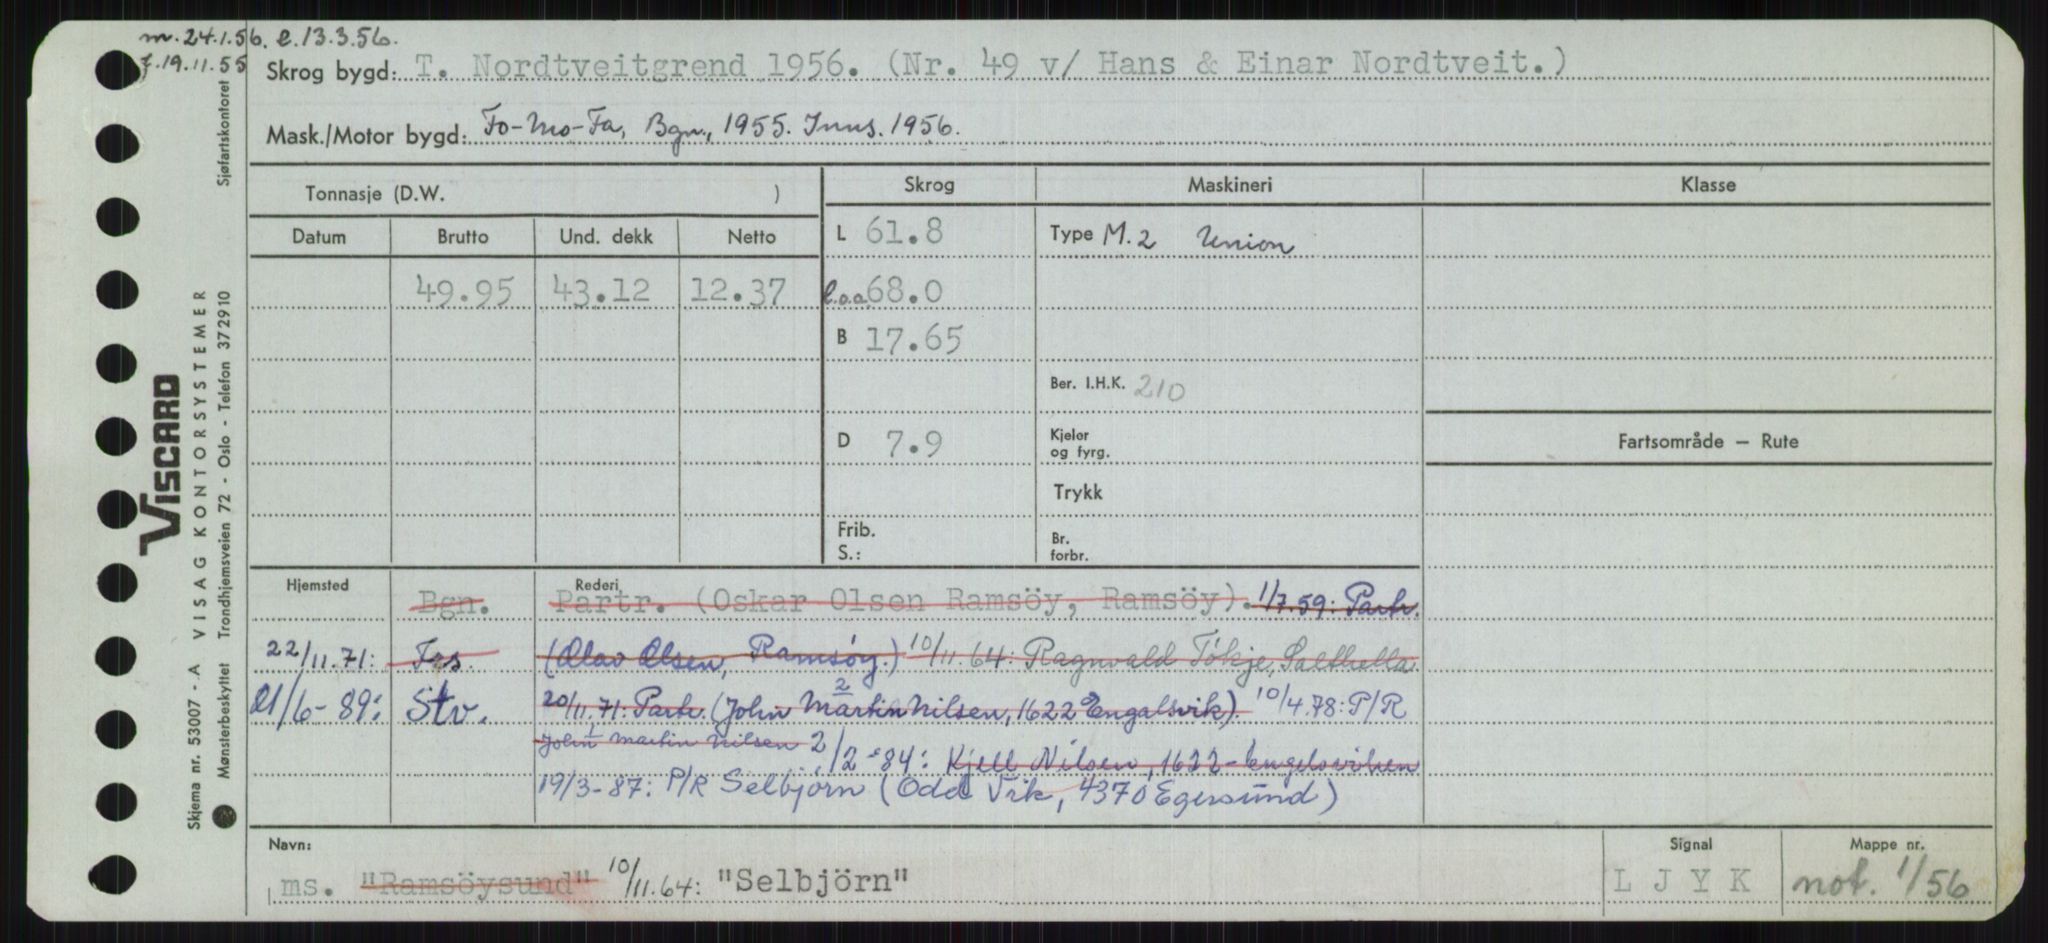 m. 24.1.56. e. 13.3.56.
f. 19.11.55
Skrog bygd: T. Nordtveitgrend 1956. (Nr. 49 v/ Hans & Einar Nordtveit.)
Mask./Motor bygd: Fo-Mo-Fa, Bgn., 1955. Inns. 1956.
Tonnasje (D.W. )
Skrog
Maskineri
Klasse
Datum
Brutto
Und. dekk
Netto
L 61.8
Type M. 2 Union
49.95
43.12
12.37
l.o.a 68.0
B 17.65
Ber. I.H.K. 210
D 7.9
Kjeler
og fyrg.
Fartsområde – Rute
Trykk
Frib.
S.:
Br.
forbr.
Hjemsted
Rederi
Bgn.
Partr. (Oskar Olsen Ramsöy, Ramsöy). 1/7.59: Partr.
22/11.71: Fas
(Olav Olsen, Ramsöy.) 10/11.64: Ragnvald Tökje, Salthella
21/6-89: Stv.
20/11.71: Partr. (John Martin Nilsen, 1622 Engalsvik). 10/4.78: P/R
2
1
John Martin Nilsen 2/2-84: Kjell Nilsen, 1622-Engelsviken
19/3-87: P/R Selbjörn (Odd Vik, 4370 Egersund)
Navn:
Signal
Mappe nr.
ms. "Ramsöysund" 10/11.64: "Selbjörn"
L J Y K
not. 1/56
VISCARD
VISAG KONTORSYSTEMER
Skjema nr. 53007 - A
Mønsterbeskyttet
Trondhjemsveien 72 - Oslo - Telefon 372910
Sjøfartskontoret